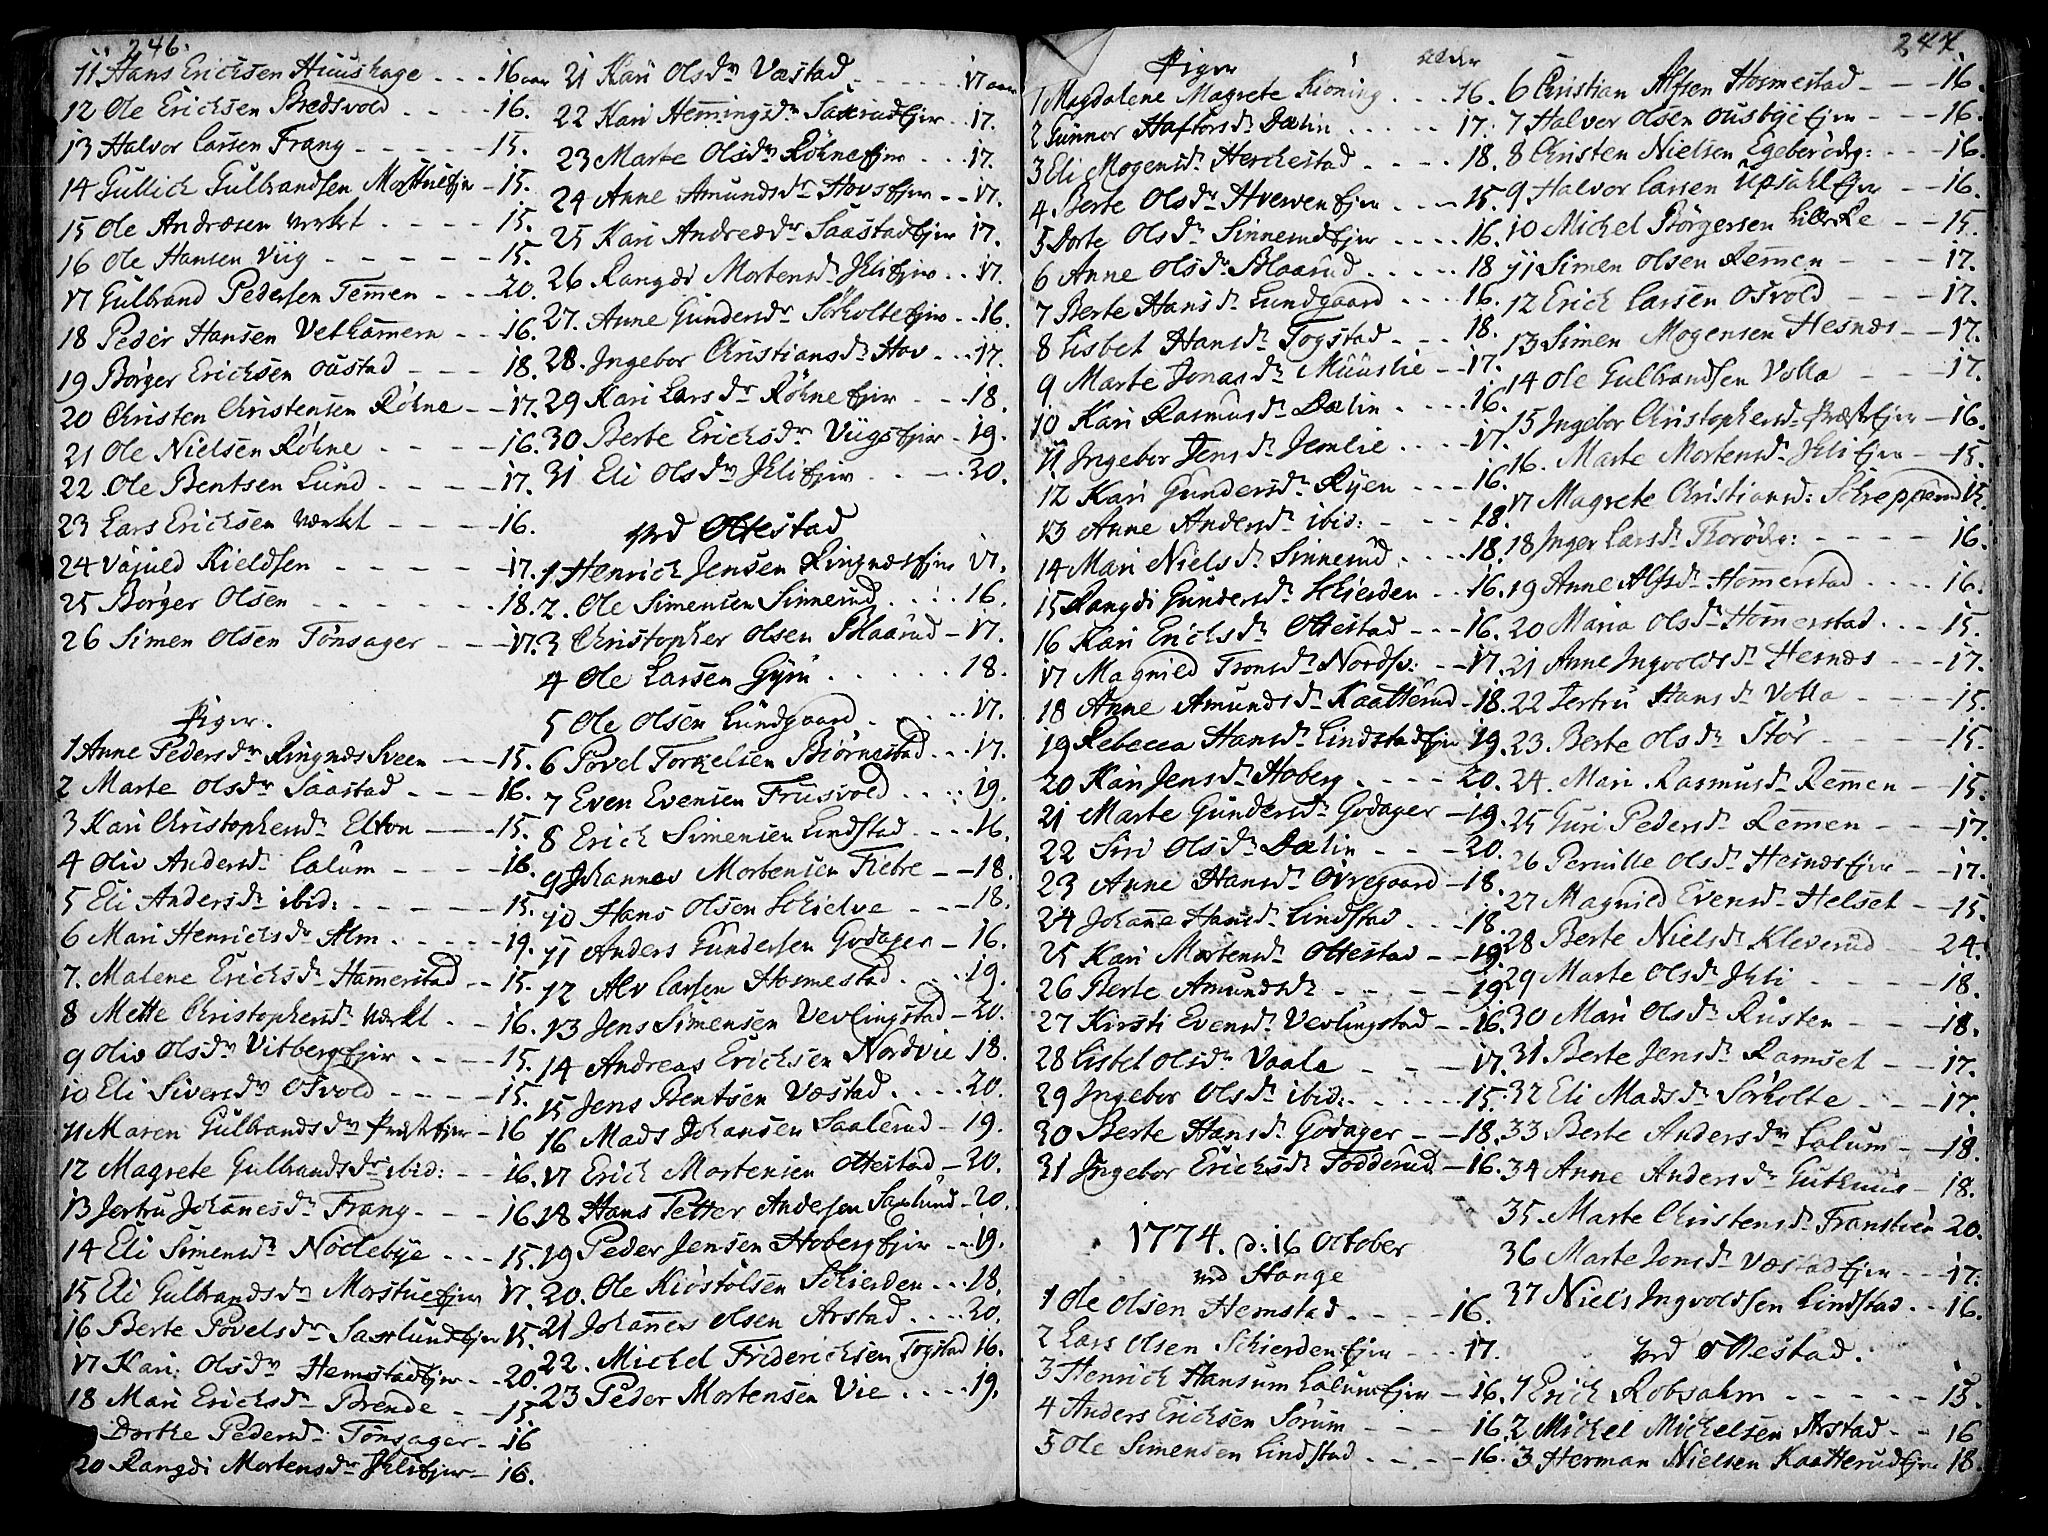 246.
11 Hans Erichsen Huushage - - - 16 aar
12 Ole Erichsen Bredsvold - - - - 16.
13 Halvor Larsen Frang - - - - - 15.
14 Gullich Gulbrandsen Morstue Ejer - 15.
15 Ole Andresen værket - - - - 15.
16 Ole Hansen Viig - - - - - 15.
17 Gulbrand Pedersen Temen - - - 20.
18 Peder Hansen Vethamern - - 16.
19 Börger Erichsen oustad - - - - 18.
20 Christen Christensen Röhne - - 17.
21 Ole Nielsen Röhne - - - - 16.
22 Ole Bentsen Lund - - - - 17.
23 Lars Erichsen værket - - - - 16.
24 Kieldsen - - - - - 17.
25 Börger Olsen - - - - - - 18.
26 Simen Olsen Tönsager - - - 17.
Piger.
1 Anne Pedersdr Ringnes Sveen - - 15.
2 Marte Olsdr Saastad - - - - 16.
3 Kari Christophersdr Elton - - - 15.
4 Oliv Andersdr Lalum - - - - 16.
5 Eli Andersdr ibid: - - - - - 15.
6 Mari Henrichsdr Alm - - - - - 19.
7. Malene Erichsdr Hamerstad - - 15.
8 Mette Christophersdr værket - - 16.
9 Oliv Olsdr Vitberg Ejer - - - - 15.
10 Eli Siversdr Osvold - - - - 15.
11 Maren Gulbrandsdr Præst Ejer - 16
12 Magrete Gulbrandsdr ibid: - - 16.
13 Jertru Johanesdr Frang - - - 16.
14 Eli Simensdr Nöclebye - - - 15.
15 Eli Gulbrandsdr Morstue Ejer 17.
16 Berte Povelsdr Saxlund Ejer 15.
17 Kari Olsdr Hemstad Ejer - - 20.
18 Mari Erichsdr Törende - - 15.
Dorthe Pedersdr Tönsager - - 16
20 Rangdi Mortensdr Jkli Ejer - 16.
21 Kari Olsdr Væstad - - - - - 17 aar
22 Kari Hemingsdr Saxrud Ejer - - 17.
23 Marte Olsdr Röhne Ejer - - - 17.
24 Anne Amundsdr Hovs Ejer - - 17.
25 Kari Andreasdr Saastad Ejer 17.
26 Rangdi Mortensdr Jkli Ejer - - 17.
27. Anne Gundersdr Sörholte Ejer - - 16.
28. Ingebor Christiansdr Hov - - - 17.
29 Kari Larsdr Röhne Ejer - - - 18.
30 Berte Erichsdr Viigs Ejer - 19.
31 Eli Olsdr Jkli Ejer - - - - 20.
ved Ottestad
1 Henrich Jensen Ringnes Ejer 17.
2. Ole Simensen Sinnerud - - - - 16.
3 Christopher Olsen Blaarud - 17.
4 Ole Larsen Gÿrü - - - - - - 18.
5 Ole Olsen Lundgaard - - - - - 17.
6 Povel Torkelsen Biörnestad - - - 17.
7 Even Evensen Frusvold - - - - 19.
8 Erich Simensen Lindstad - - - - 16.
9 Johannes Mortensen Fiebre - - 18.
10 Hans Olsen Schielve - - - 18.
11 Anders Gundersen Godager - 16.
12 Alv Larsen Hosmestad - - - 19.
13 Jens Simensen Vevlingstad - 20.
14 Andreas Erichsen Nordvie 18.
15 Jens Bentsen Væstad - - - - 20.
16 Mads Johansen Saalerud - 19.
17 Erich Mortensen Ottestad - 20.
18 Hans Petter Andersen Saxlund - 20.
19 Peder Jensen Hoberg Ejer - - 19.
20. Ole Kiöstolsen Schierden - - 18.
21 Johanes Olsen Arstad - - - - 20.
22. Michel Friderichsen Togstad 16.
23 Peder Mortensen Vie - - - - 19.
247.
Piger alder
1 Magdalene Magrete Kioning - - - 16.
2 Gunnor Haftorsdr Dælin - - - - - 17.
3 Eli Mogensdr Herchestad - - - - 18.
4. Berte Olsdr Hverven Ejer - - - - 15.
5 Dorte Olsdr Sinnerud Ejer - - - - 16.
6 Anne Olsdr Blaarud - - - - - 18
7 Berte Hansdr Lundgaard - - - - 16.
8 Lisbet Hansdr Togstad - - - 18.
9 Marte Jonasdr Müüslie - - 17.
10 Kari Rasmusdr Dælin - - - - 16.
11 Ingebor Jensdr Jemlie - - - - 17.
12 Kari Gundersdr Ryen - - - 16.
13 Anne Andersdr ibid: - - - 18.
14 Mari Nielsdr Sinnerud - - - - 18.
15 Rangdi Gundersdr Schierden - - 16.
16 Kari Erichsdr Ottestad - - - 16.
17 Magnild Tronsdr Nordh: - - 17.
18 Anne Amundsdr Kaatterud - 18.
19 Rebecca Hansdr Lindstad Ejer 19.
20 Kari Jensdr Hoberg - - - - 20.
21 Marte Gundersdr Godager - 19.
22 Siri Olsdr Dælin - - - - 20.
23 Anne Hansdr Övregaard - 18.
24 Johane Hansdr Lindstad - - - 18.
25 Kari Mortensdr Ottestad - - 19.
26 Berte Amundsdr - - - - - 19.
27 Kirsti Evensdr Vevlingstad - - 16.
28 Lisbet Olsdr Vaale - - - 17.
29 Ingebor Olsdr ibid: - - - - - 15.
30 Berte Hansdr Godager - - 18.
31 Ingebor Erichsdr Todderud - 16.
1774. D: 16 October
ved Stange
1 Ole Olsen Hemstad - - - - 16.
2 Lars Olsen Schierden Ejer - - - 17.
3 Henrich Hansum Lalum Ejer - 16.
4 Anders Erichsen Sörum - - - - 16.
5 Ole Simensen Lindstad - - - - 16.
6 Christian Alfsen Hosmestad - - - 16.
7 Halvor Olsen Ousbye Ejer - - - 16.
8 Christen Nielsen Egeberödg: - - - 16.
9 Halvor Larsen Upsahl Ejer - - 16.
10 Michel Börgersen Lille Re - - 15.
11 Simen Olsen Remen - - - - 17.
12 Erich Larsen Osvold - - - 17.
13 Simen Mogensen Hesnæs - - 17.
14 Ole Gulbrandsen Volla - - - 17.
15 Ingebor Christophersdr Præst Ejer - 16.
16. Marte Mortensdr Jkli Ejer - - 15.
17 Magrete Christiansdr: Schepperud 15.
18 Inger Larsdr Thorödg: - - - - - 16.
19 Anne Alfsdr Homerstad - - - - 16.
20 Maria Olsdr Homerstad - - - 15.
21 Anne Ingvoldsdr Hesnæs - - - 17.
22 Jertru Hansdr Volla - - - - 15.
23. Berte Olsdr Stör - - - - - 15.
24. Mari Rasmusdr Remen - - 15.
25 Guri Pedersdr Remen - - - 17.
26 Pernille Olsdr Hesnæs Ejer - - 17.
27 Magnild Evensdr Helset - - 15.
28 Berte Nielsdr Kleverud - - 24.
29 Marte Olsdr Jkli - - - - - 18.
30 Mari Olsdr Rusten - - - 18.
31 Berte Jensdr Ramset - - 17.
32 Eli Madsdr Sörholte - - - 17.
33 Berte Andersdr Lalum - - 18.
34 Anne Andersdr Guthuus - 18.
35. Marte Christensdr 20.
36 Marte Jonsdr Væstad Ejer - - - 17.
37 Niels Ingvoldsen Lindstad - - 16.
ved Ottestad.
1 Erich Robsahm - - - - - - 15.
2 Michel Michelsen Arstad - - - 16
3 Herman Nielsen Kaatterud Ejer 18.